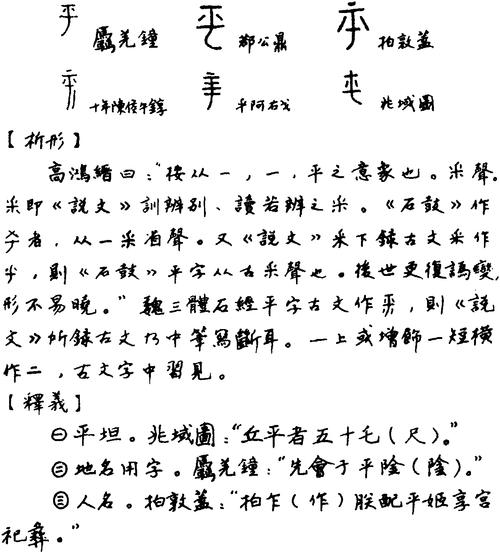 屭羌鐘 鄀公鼎 拍敦蓋
十年陳侯午錞 平阿右戈 兆域圖
【析形】
高鴻縉曰：“按从一，一，平之意象也。釆聲。
釆即《説文》訓辨別、讀若辨之釆。《石鼓》作
者，从一釆省聲。又《説文》釆下録古文釆作
，則《石鼓》平字从古釆聲也。後世更復譌變，
形不易曉。”魏三體石經平字古文作，則《説
文》所録古文乃中筆寫斷耳。一上或增飾一短橫
作二，古文字中習見。
【釋義】
㊀平坦。兆域圖：“丘平者五十乇（尺）。”
㊁地名用字。屭羌鐘：“先會于平陰（陰）。”
㊂人名。拍敦蓋：“拍乍（作）朕配平姬享宮
祀彝。”